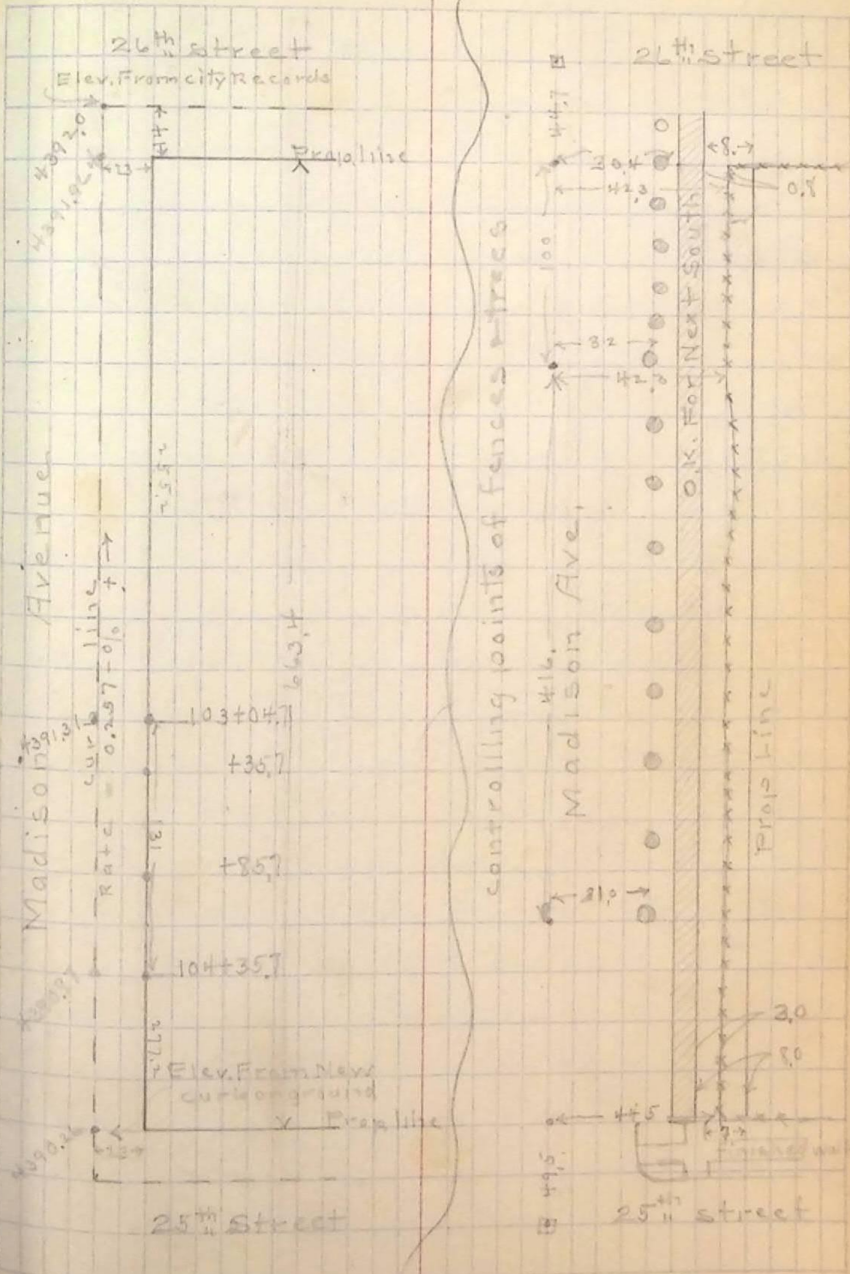 26th Street
Elev. From city Records
4392.0
44
23
Prop. line
Madison Avenue
curb line
Rate = 0.257-0% +
663.4
103+04.7
+35.7
131
+85.7
104+35.7
277.2
Elev. From New
curb on ground
Prop. line
23
25th Street
controlling points of fences & trees
26th Street
44.7
30.4
42.3
8.
0.8
100
32
42.3
O.K. For Next South
416.
Madison Ave,
31.0
Prop Line
3.0
8.0
44.5
7
49.5
25th street